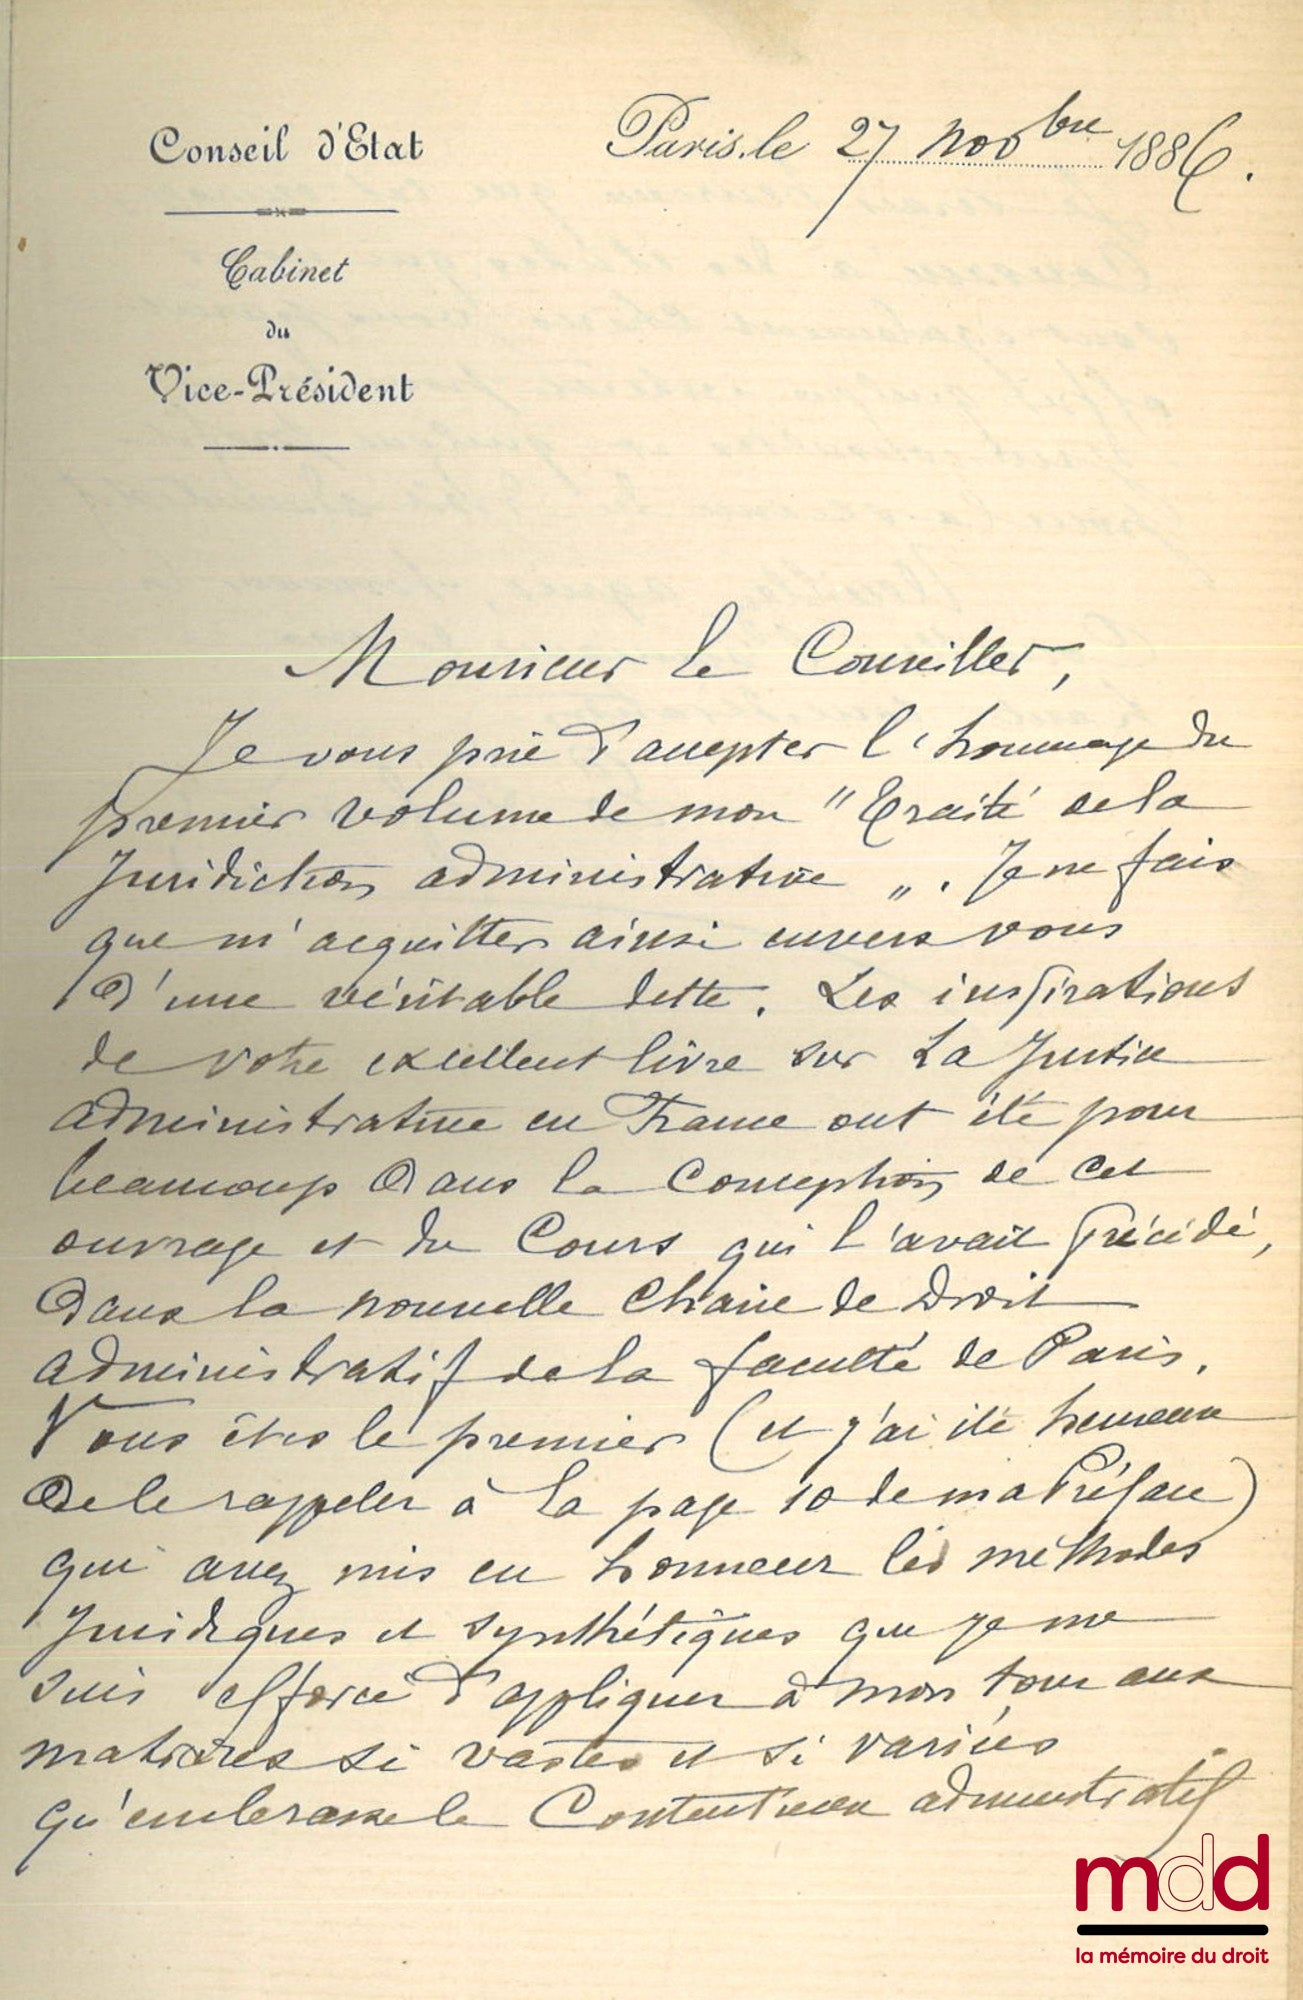 Conseil d'Etat
Cabinet
du
Vice-Président
Paris, le 27 Novbre 1886.
Monsieur le Conseiller,
Je vous prie d'accepter l'hommage du
premier volume de mon "Traité de la
Juridiction administrative ". Je ne fais
que m'acquitter ainsi envers vous
d'une véritable dette. Les inspirations
de votre excellent livre sur La Justice
administrative en France ont été pour
beaucoup dans la conception de cet
ouvrage et du Cours qui l'avait précédé,
dans la nouvelle Chaire de Droit
administratif de la faculté de Paris.
Vous êtes le premier (et j'ai été heureux
de le rappeler à la page 10 de ma Préface)
qui avez mis en honneur les méthodes
Juridiques et synthétiques que je me
suis efforcé d'appliquer à mon tour aux
matières si vastes et si variées
qu'embrasse le Contentieux administratif
mdd
la mémoire du droit